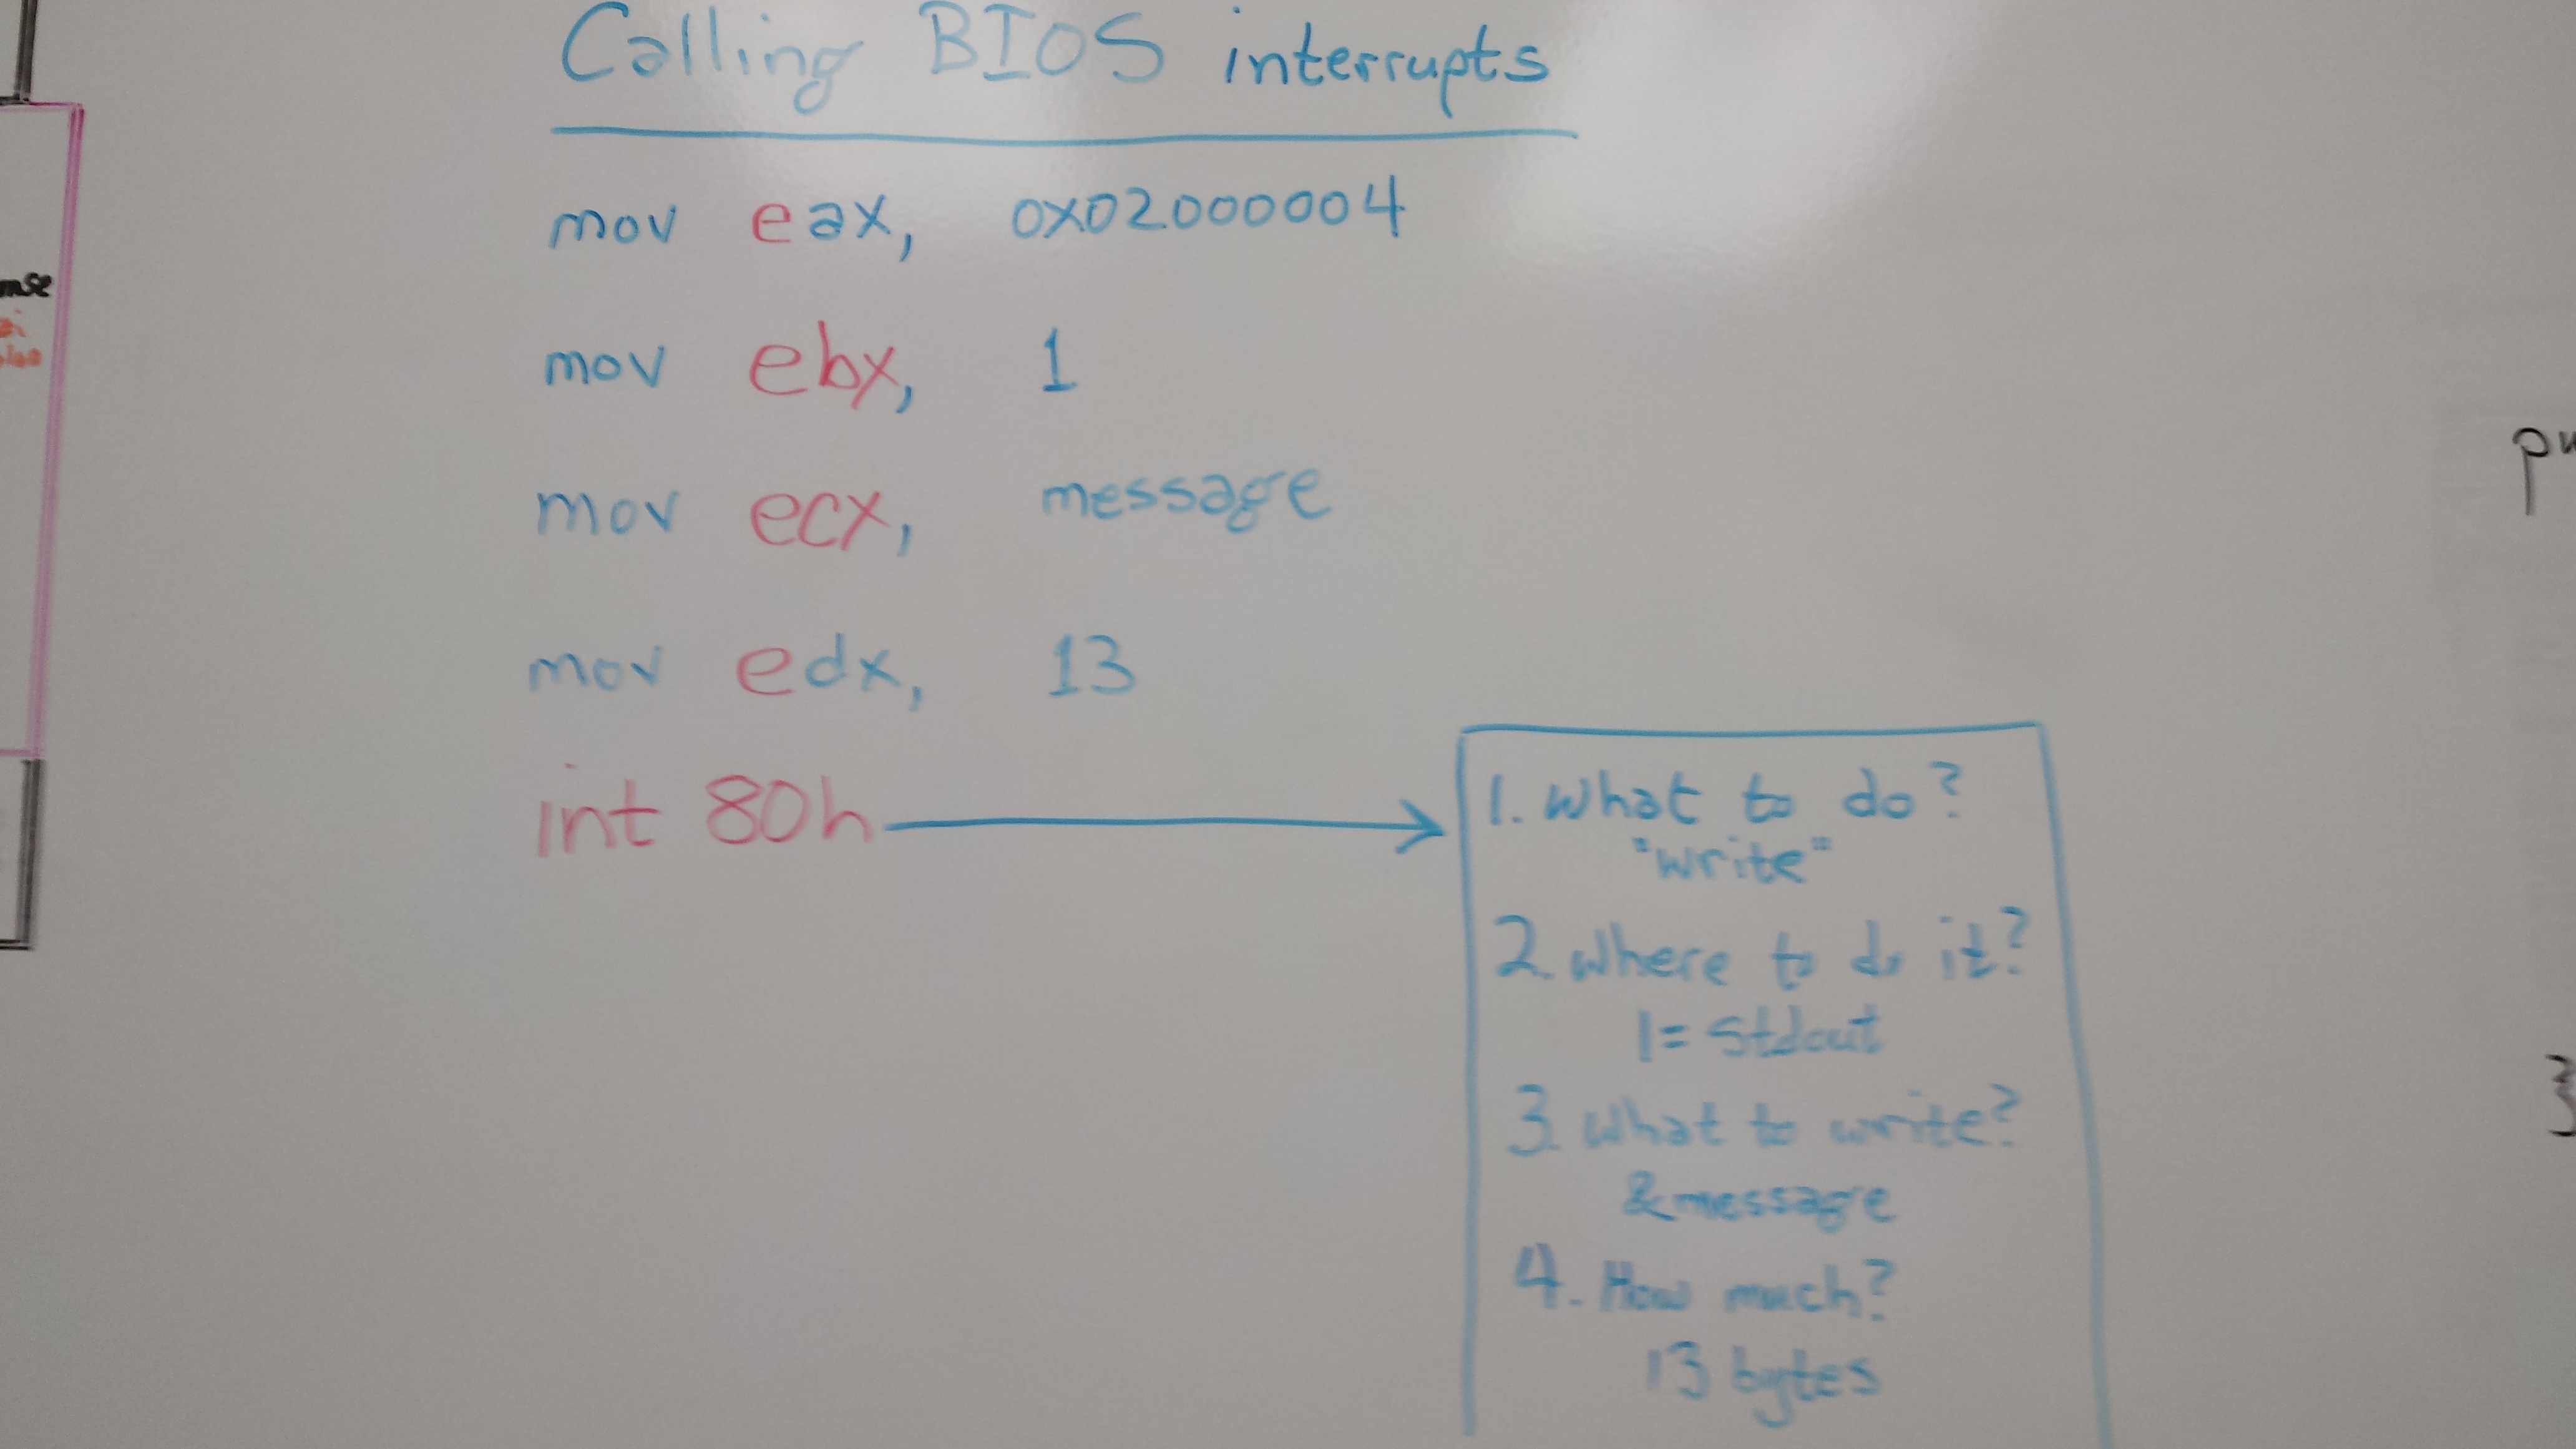 Calling BIOS interrupts
mov eax, 0x02000004
mov ebx, 1
mov ecx, message
mov edx, 13
int 80h
1. What to do?
"write"
2. Where to do it?
1 = stdout
3. What to write?
&message
4. How much?
13 bytes